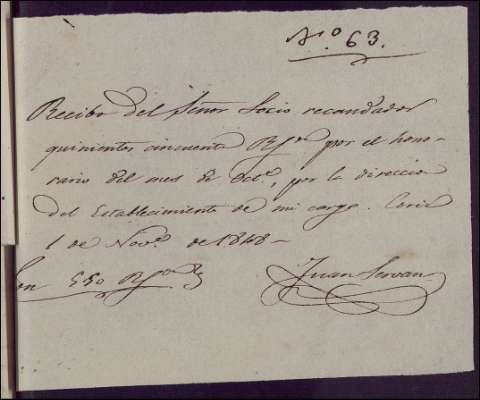 Nº 63.
Recibo del Señor Socio recaudador
quinientos cincuenta Rsvn por el hono-
rario del mes de Octe, por la direccion
del Establecimiento de mi cargo. Coria
1 de Nove de 1848 -
Son 550 Rsvn
Juan Servan